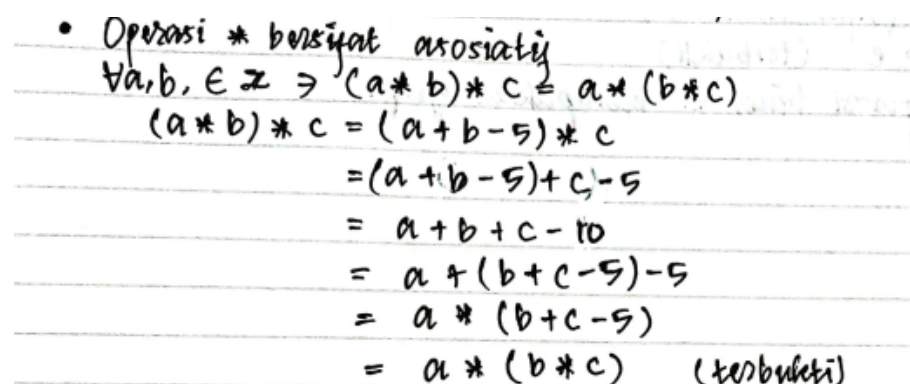 • Operasi * bersifat asosiatif
∀a,b, ∈ Z ∋ (a * b) * c = a * (b * c)
(a * b) * c = (a + b - 5) * c
= (a + b - 5) + c - 5
= a + b + c - 10
= a + (b + c - 5) - 5
= a * (b + c - 5)
= a * (b * c) (terbukti)